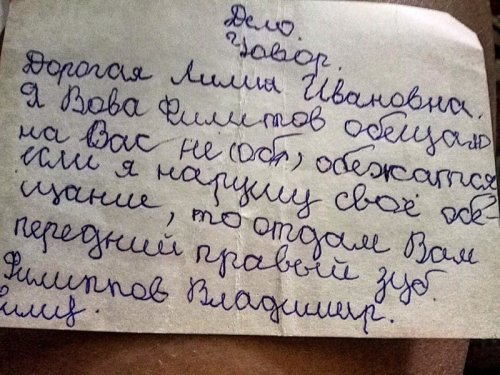 Дело.
Говор.
Дорогая Лилия Ивановна.
Я Вова Филипов обещаю
на Вас не (об), обежатся
если я нарушу своё обе-
щание, то отдам Вам
передний правый зуб.
Филиппов Владимир.